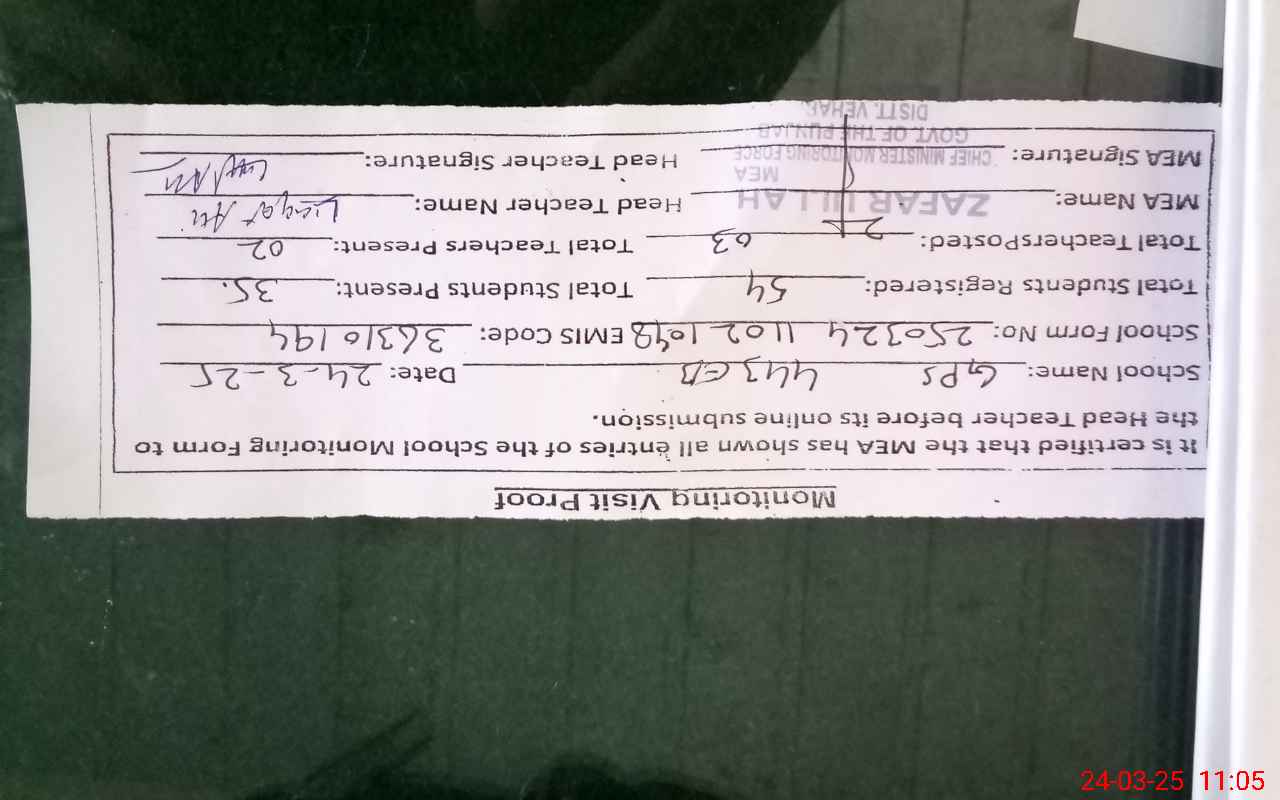 Monitoring Visit Proof
It is certified that the MEA has shown all entries of the School Monitoring Form to
the Head Teacher before its online submission.
School Name: GPS 443 EB Date: 24-3-25
School Form No: 250324 1102 1048 EMIS Code: 36310194
Total Students Registered: 54 Total Students Present: 35.
Total TeachersPosted: 03 Total Teachers Present: 02
MEA Name: ZAFAR ULLAH Head Teacher Name: Liaqat Ali
MEA
MEA Signature: CHIEF MINISTER MONITORING FORCE Head Teacher Signature:
GOVT. OF THE PUNJAB
DISTT. VEHARI
24-03-25 11:05